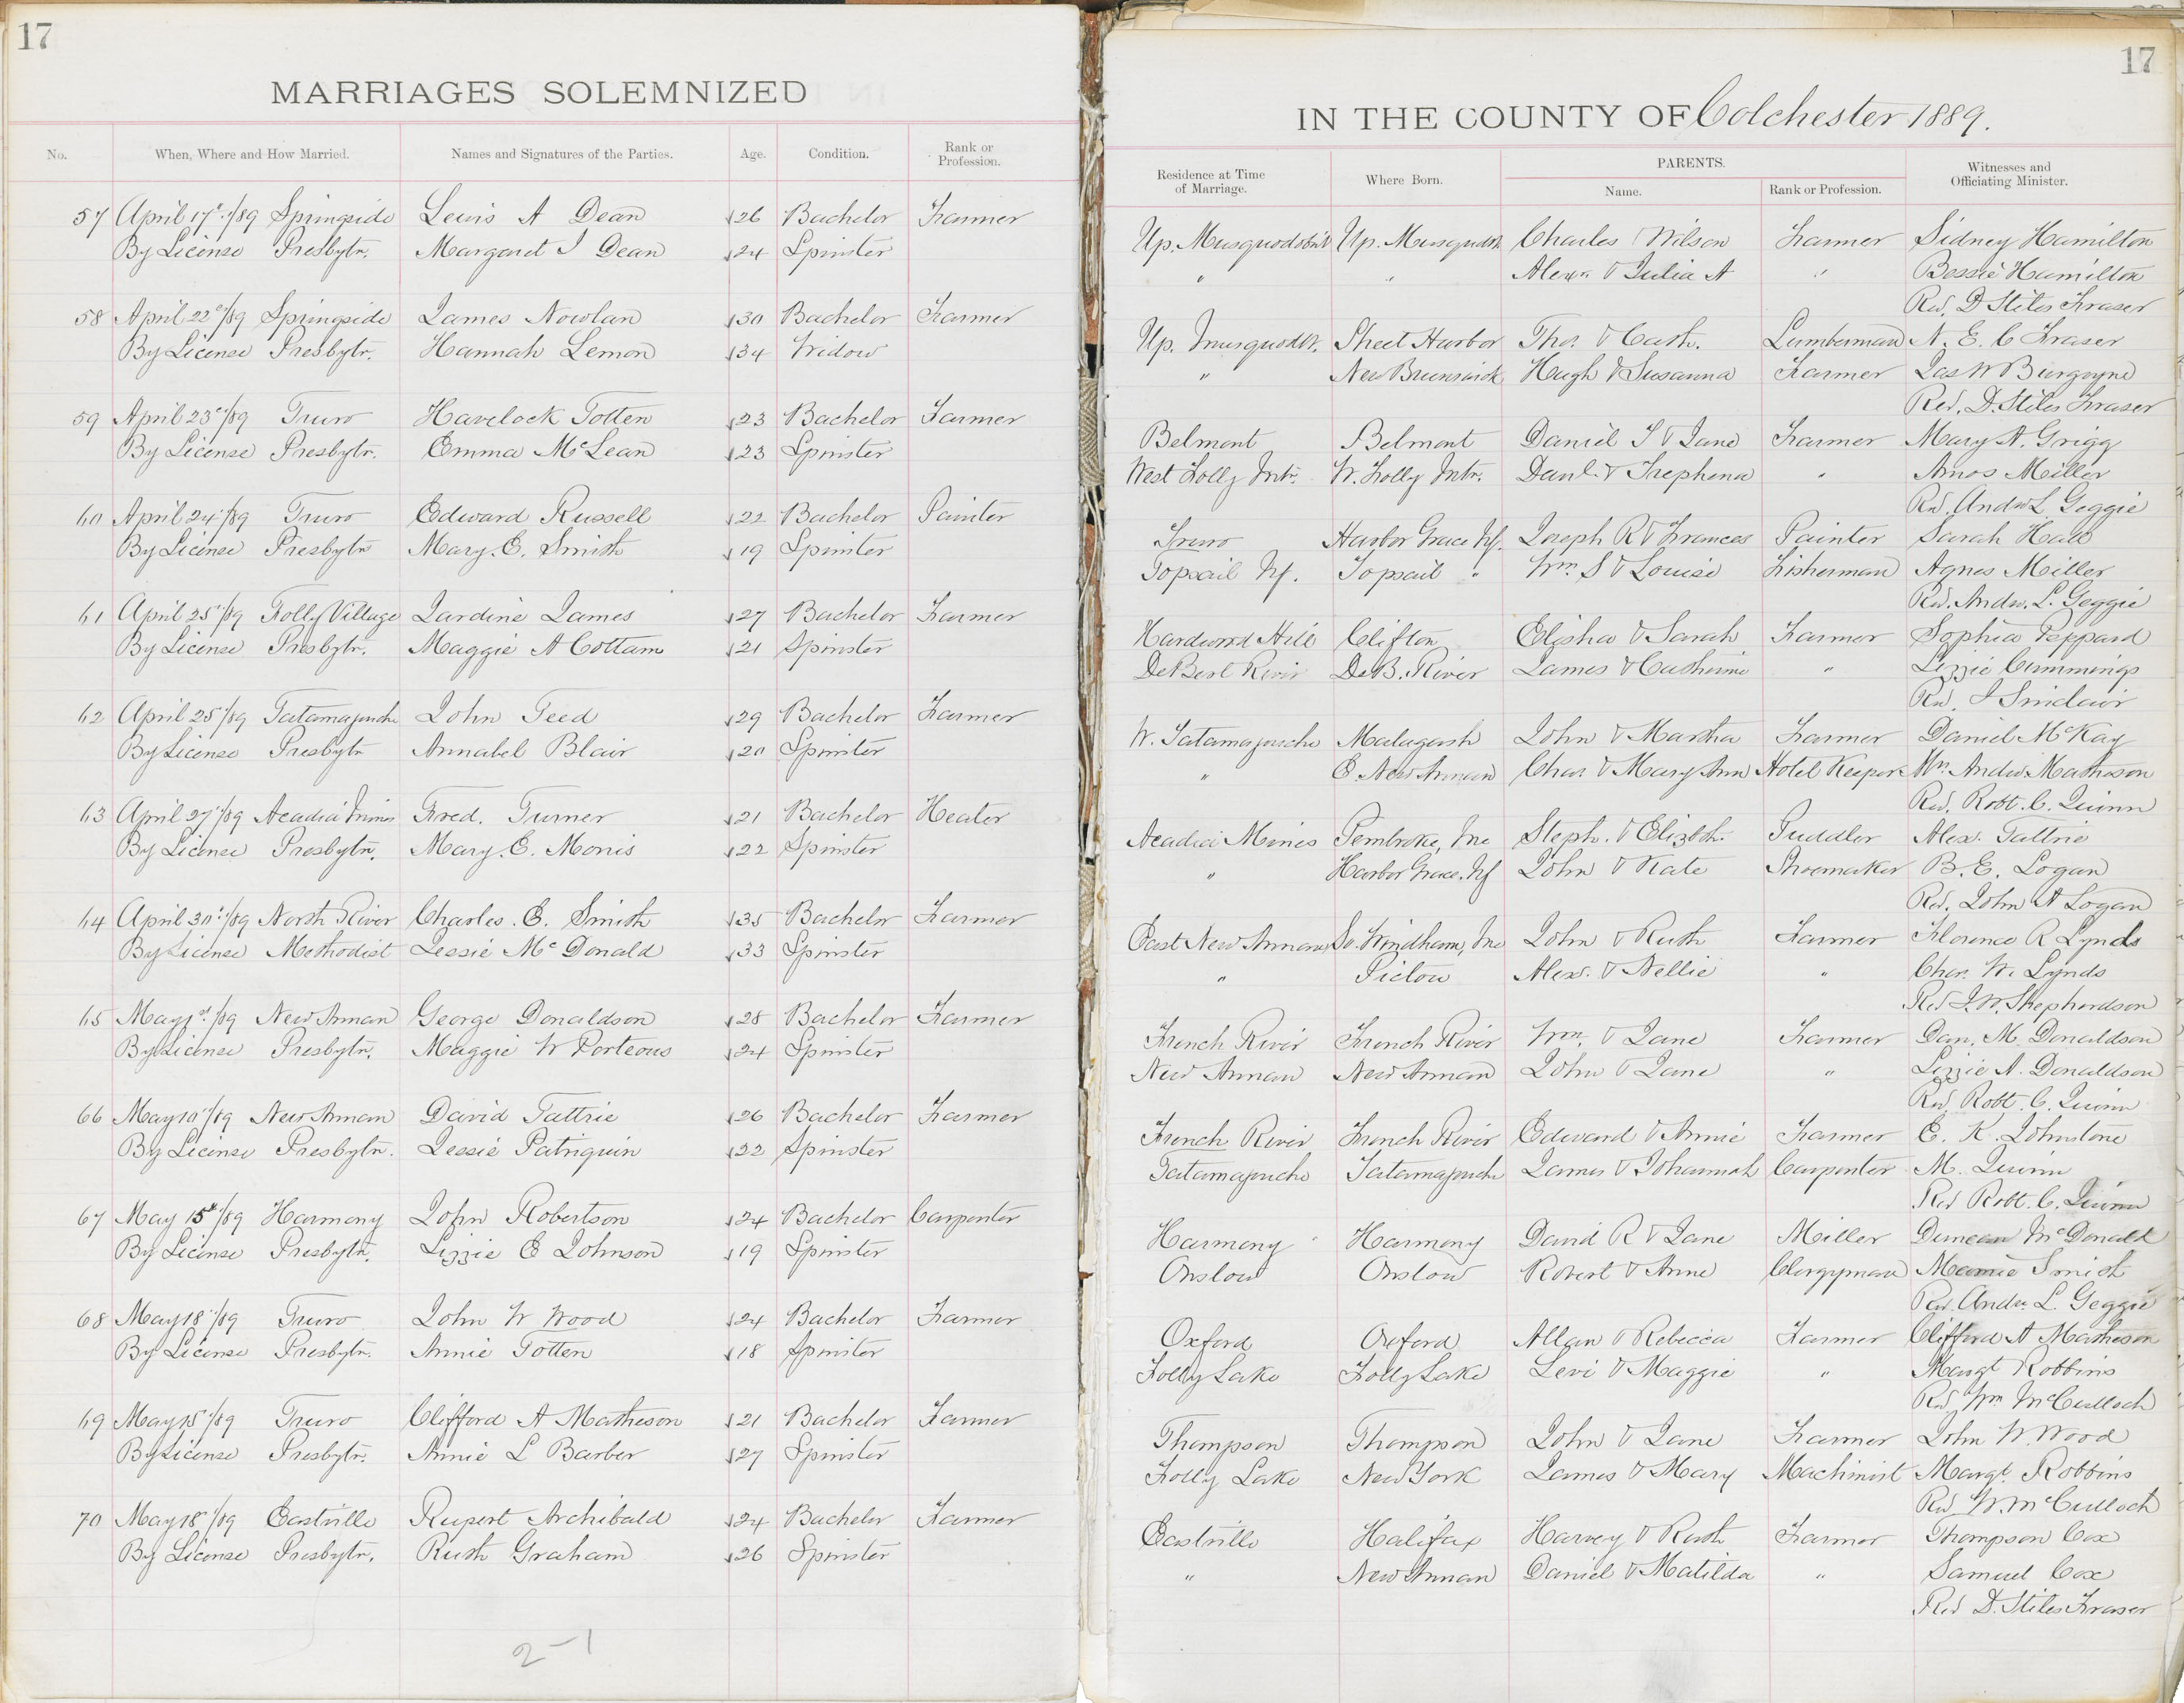 17
MARRIAGES SOLEMNIZED
No. When, Where and How Married. Names and Signatures of the Parties. Age. Condition. Rank or Profession.
57 April 17th/89 Springside Lewis A Dean 26 Bachelor Farmer
By License Presbytn. Margaret J Dean 24 Spinster
58 April 22d/89 Springside James Nowlan 30 Bachelor Farmer
By License Presbytn. Hannah Lemon 34 Widow
59 April 23d/89 Truro Havelock Totten 23 Bachelor Farmer
By License Presbytn. Emma McLean 23 Spinster
60 April 24/89 Truro Edward Russell 22 Bachelor Painter
By License Presbytn Mary. E. Smith 19 Spinster
61 April 25/89 Folly Village Jardine James 27 Bachelor Farmer
By License Presbytn. Maggie A Cottam 21 Spinster
62 April 25/89 Tatamagouche John Teed 29 Bachelor Farmer
By License Presbytn Annabel Blair 20 Spinster
63 April 27/89 Acadia Mines Fred. Turner 21 Bachelor Heater
By License Presbytn. Mary. E. Morris 22 Spinster
64 April 30/89 North River Charles. E. Smith 35 Bachelor Farmer
By License Methodist Jessie McDonald 33 Spinster
65 May 1st/89 New Annan George Donaldson 28 Bachelor Farmer
By License Presbytn. Maggie W Porteous 24 Spinster
66 May 10/89 New Annan David Tattrie 26 Bachelor Farmer
By License Presbytn. Jessie Patriquin 22 Spinster
67 May 15th/89 Harmony John Robertson 24 Bachelor Carpenter
By License Presbytn. Lizzie E Johnson 19 Spinster
68 May 18/89 Truro John W Wood 24 Bachelor Farmer
By License Presbytn. Annie Totten 18 Spinster
69 May 18/89 Truro Clifford A Matheson 21 Bachelor Farmer
By License Presbytn. Annie L Barber 27 Spinster
70 May 18/89 Eastville Rupert Archibald 24 Bachelor Farmer
By License Presbytn. Ruth Graham 26 Spinster
2-1
17
IN THE COUNTY OF Colchester 1889.
Residence at Time of Marriage. Where Born. PARENTS. Name. Rank or Profession. Witnesses and Officiating Minister.
Up. Musquodobit Up. Musqudt. Charles Wilson Farmer Sidney Hamilton
" " Alexr. & Julia A " Bessie Hamilton
Rev. D Stiles Fraser
Up. Musquodt. Sheet Harbor Thos. & Cath. Lumberman N. E. C Fraser
" New Brunswick Hugh & Susanna Farmer Jas W Burgoyne
Rev. D. Stiles Fraser
Belmont Belmont Daniel S & Jane Farmer Mary A. Grigg
West Folly Mtn. W. Folly Mtn. Danl. & Trephena " Amos Miller
Rev. Andw L Geggie
Truro Harbor Grace Nf. Joseph R & Frances Painter Sarah Hall
Topsail Nf. Topsail " Wm S & Louise Fisherman Agnes Miller
Rev. Andw. L. Geggie
Hardwood Hill Clifton Elisha & Sarah Farmer Sophia Peppard
DeBert River DeB. River James & Catherine " Lizzie Cummings
Rev. J Sinclair
W. Tatamagouche Malagash John & Martha Farmer Daniel McKay
" E. New Annan Chas & Mary Ann Hotel Keeper Wm. Andw Matheson
Rev. Robt. C. Quinn
Acadia Mines Pembroke, Me Steph. & Elizbth. Puddler Alex. Tattrie
" Harbor Grace. Nf John & Kate Shoemaker B. E. Logan
Rev. John A Logan
East New Annan So. Windham, Me John & Ruth Farmer Florence R Lynds
" Pictou Alex. & Nellie " Chas. W. Lynds
Rev J. W. Shepherdson
French River French River Wm. & Jane Farmer Dan. M. Donaldson
New Annan New Annan John & Jane " Lizzie A. Donaldson
Rev. Robt. C. Quinn
French River French River Edward & Annie Farmer E. K. Johnstone
Tatamagouche Tatamagouche James & Johannah Carpenter M. Quinn
Rev Robt. C. Quinn
Harmony Harmony David R & Jane Miller Duncan McDonald
Onslow Onslow Robert & Anne Clergyman Mamie Smith
Rev. Andw L. Geggie
Oxford Oxford Allan & Rebecca Farmer Clifford A Matheson
Folly Lake Folly Lake Levi & Maggie " Margt Robbins
Rev Wm McCulloch
Thompson Thompson John & Jane Farmer John W. Wood
Folly Lake New York James & Mary Machinist Margt. Robbins
Rev W. McCulloch
Eastville Halifax Harvey & Ruth Farmer Thompson Cox
" New Annan Daniel & Matilda " Samuel Cox
Rev D. Stiles Fraser